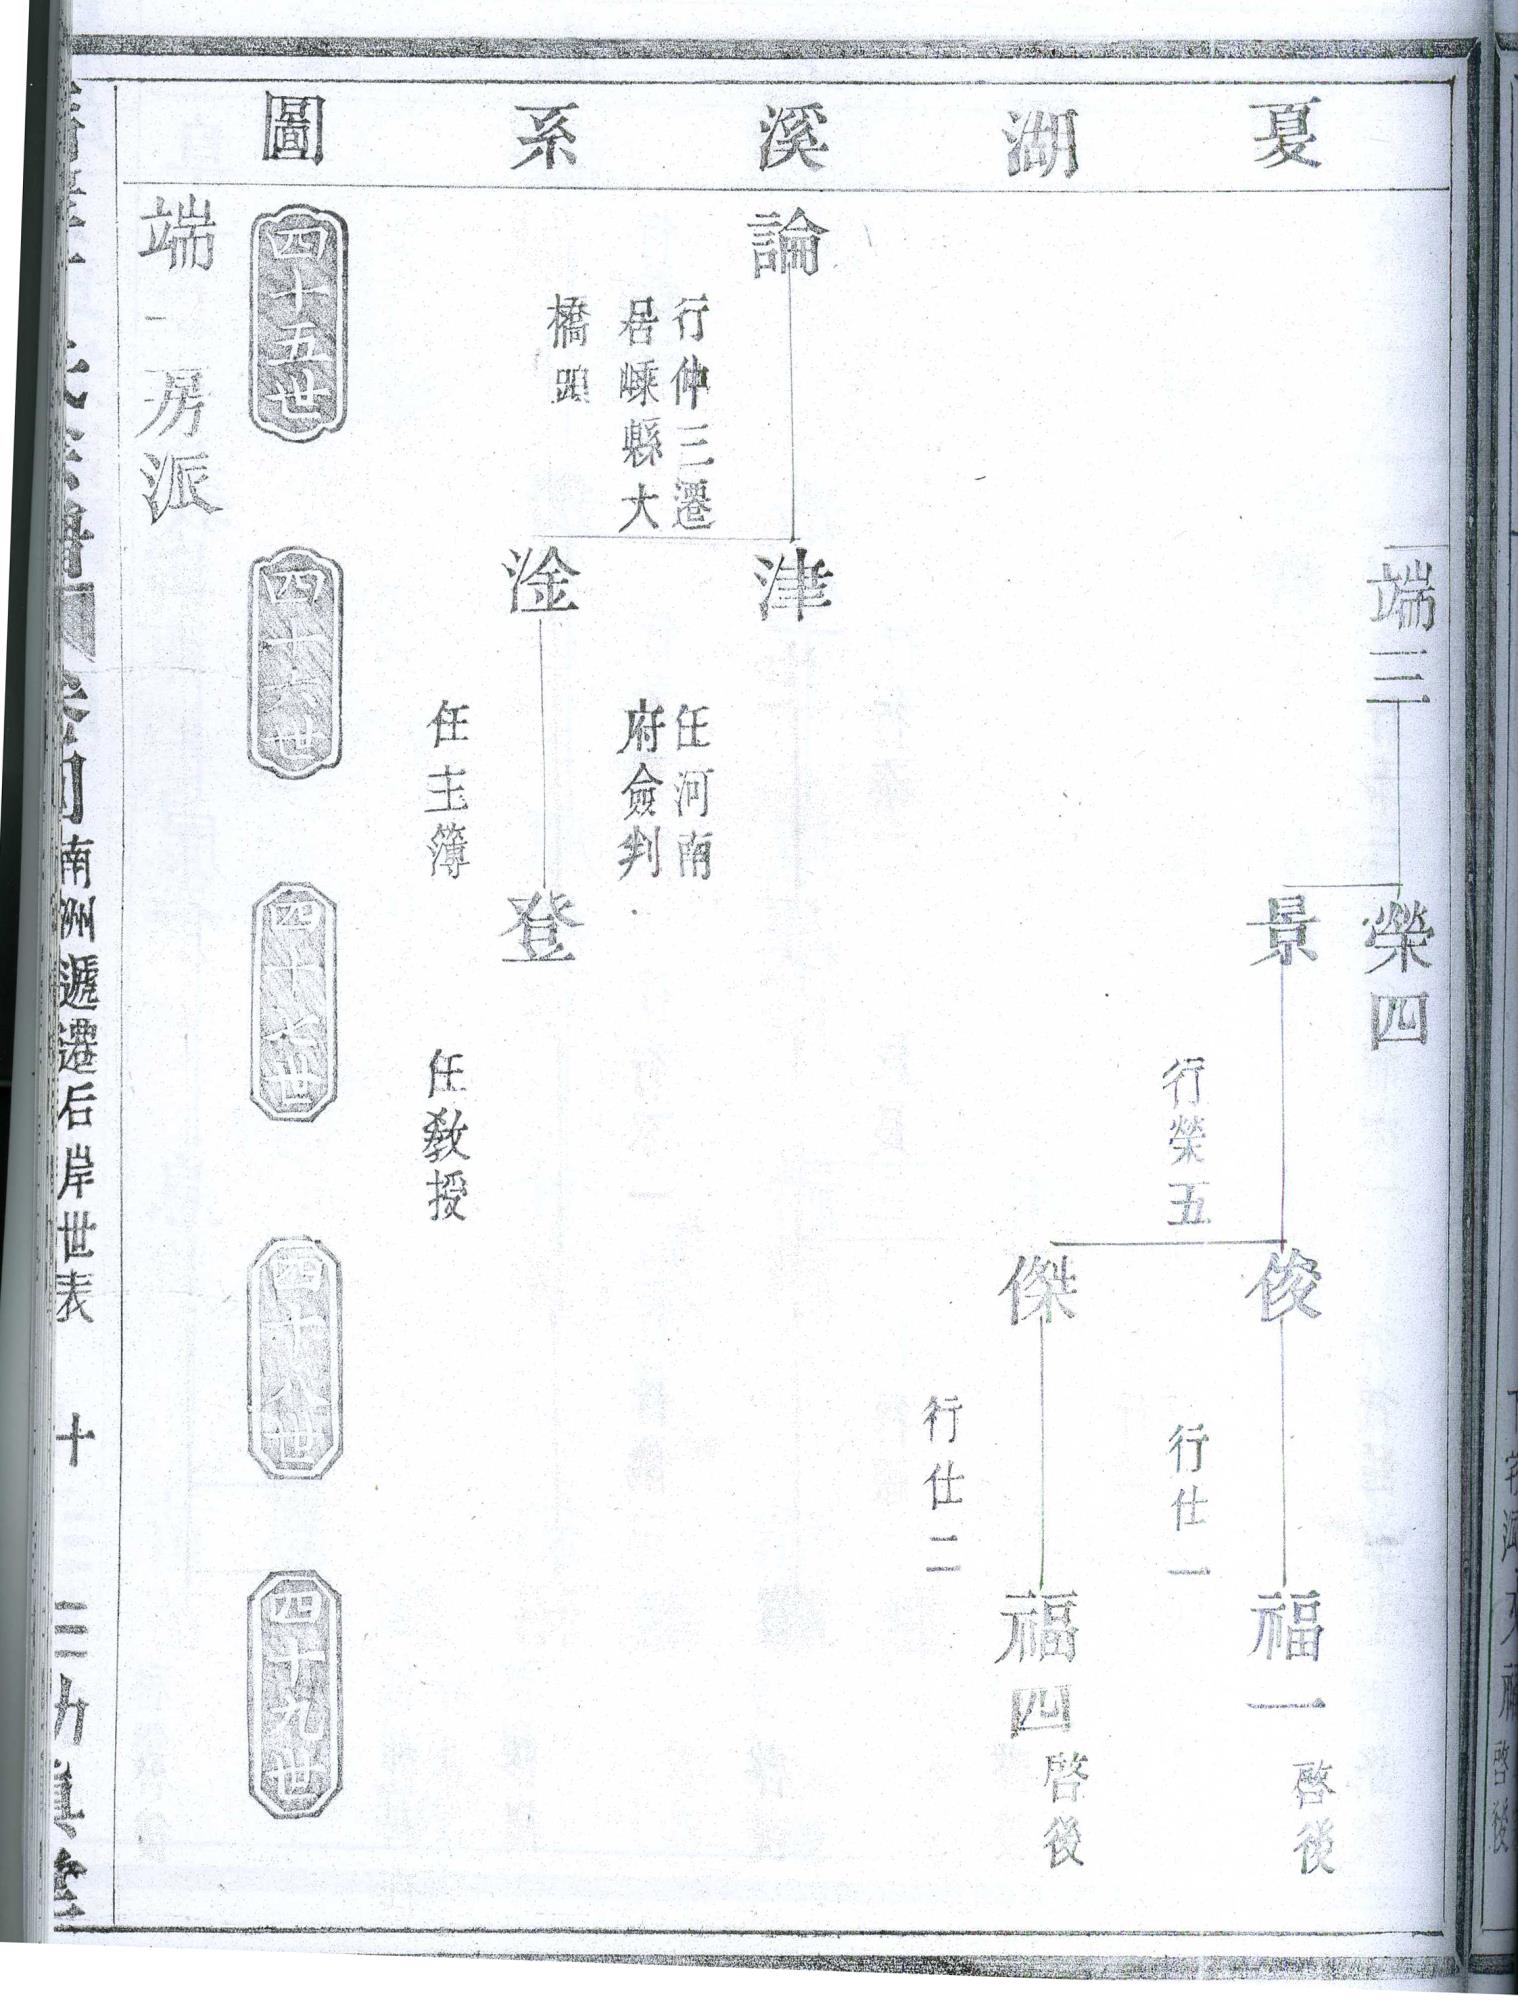 夏湖溪系圖
端三
榮四
景
行榮五
俊
行仕一
福一
啓後
傑
行仕二
福四
啓後
論
行仲三遷
居嵊縣大
橋頭
津
任河南
府僉判
淦
任主簿
登
任教授
四十五世
四十六世
四十七世
四十八世
四十九世
端一房派
南洲遞遷后岸世表
十
三